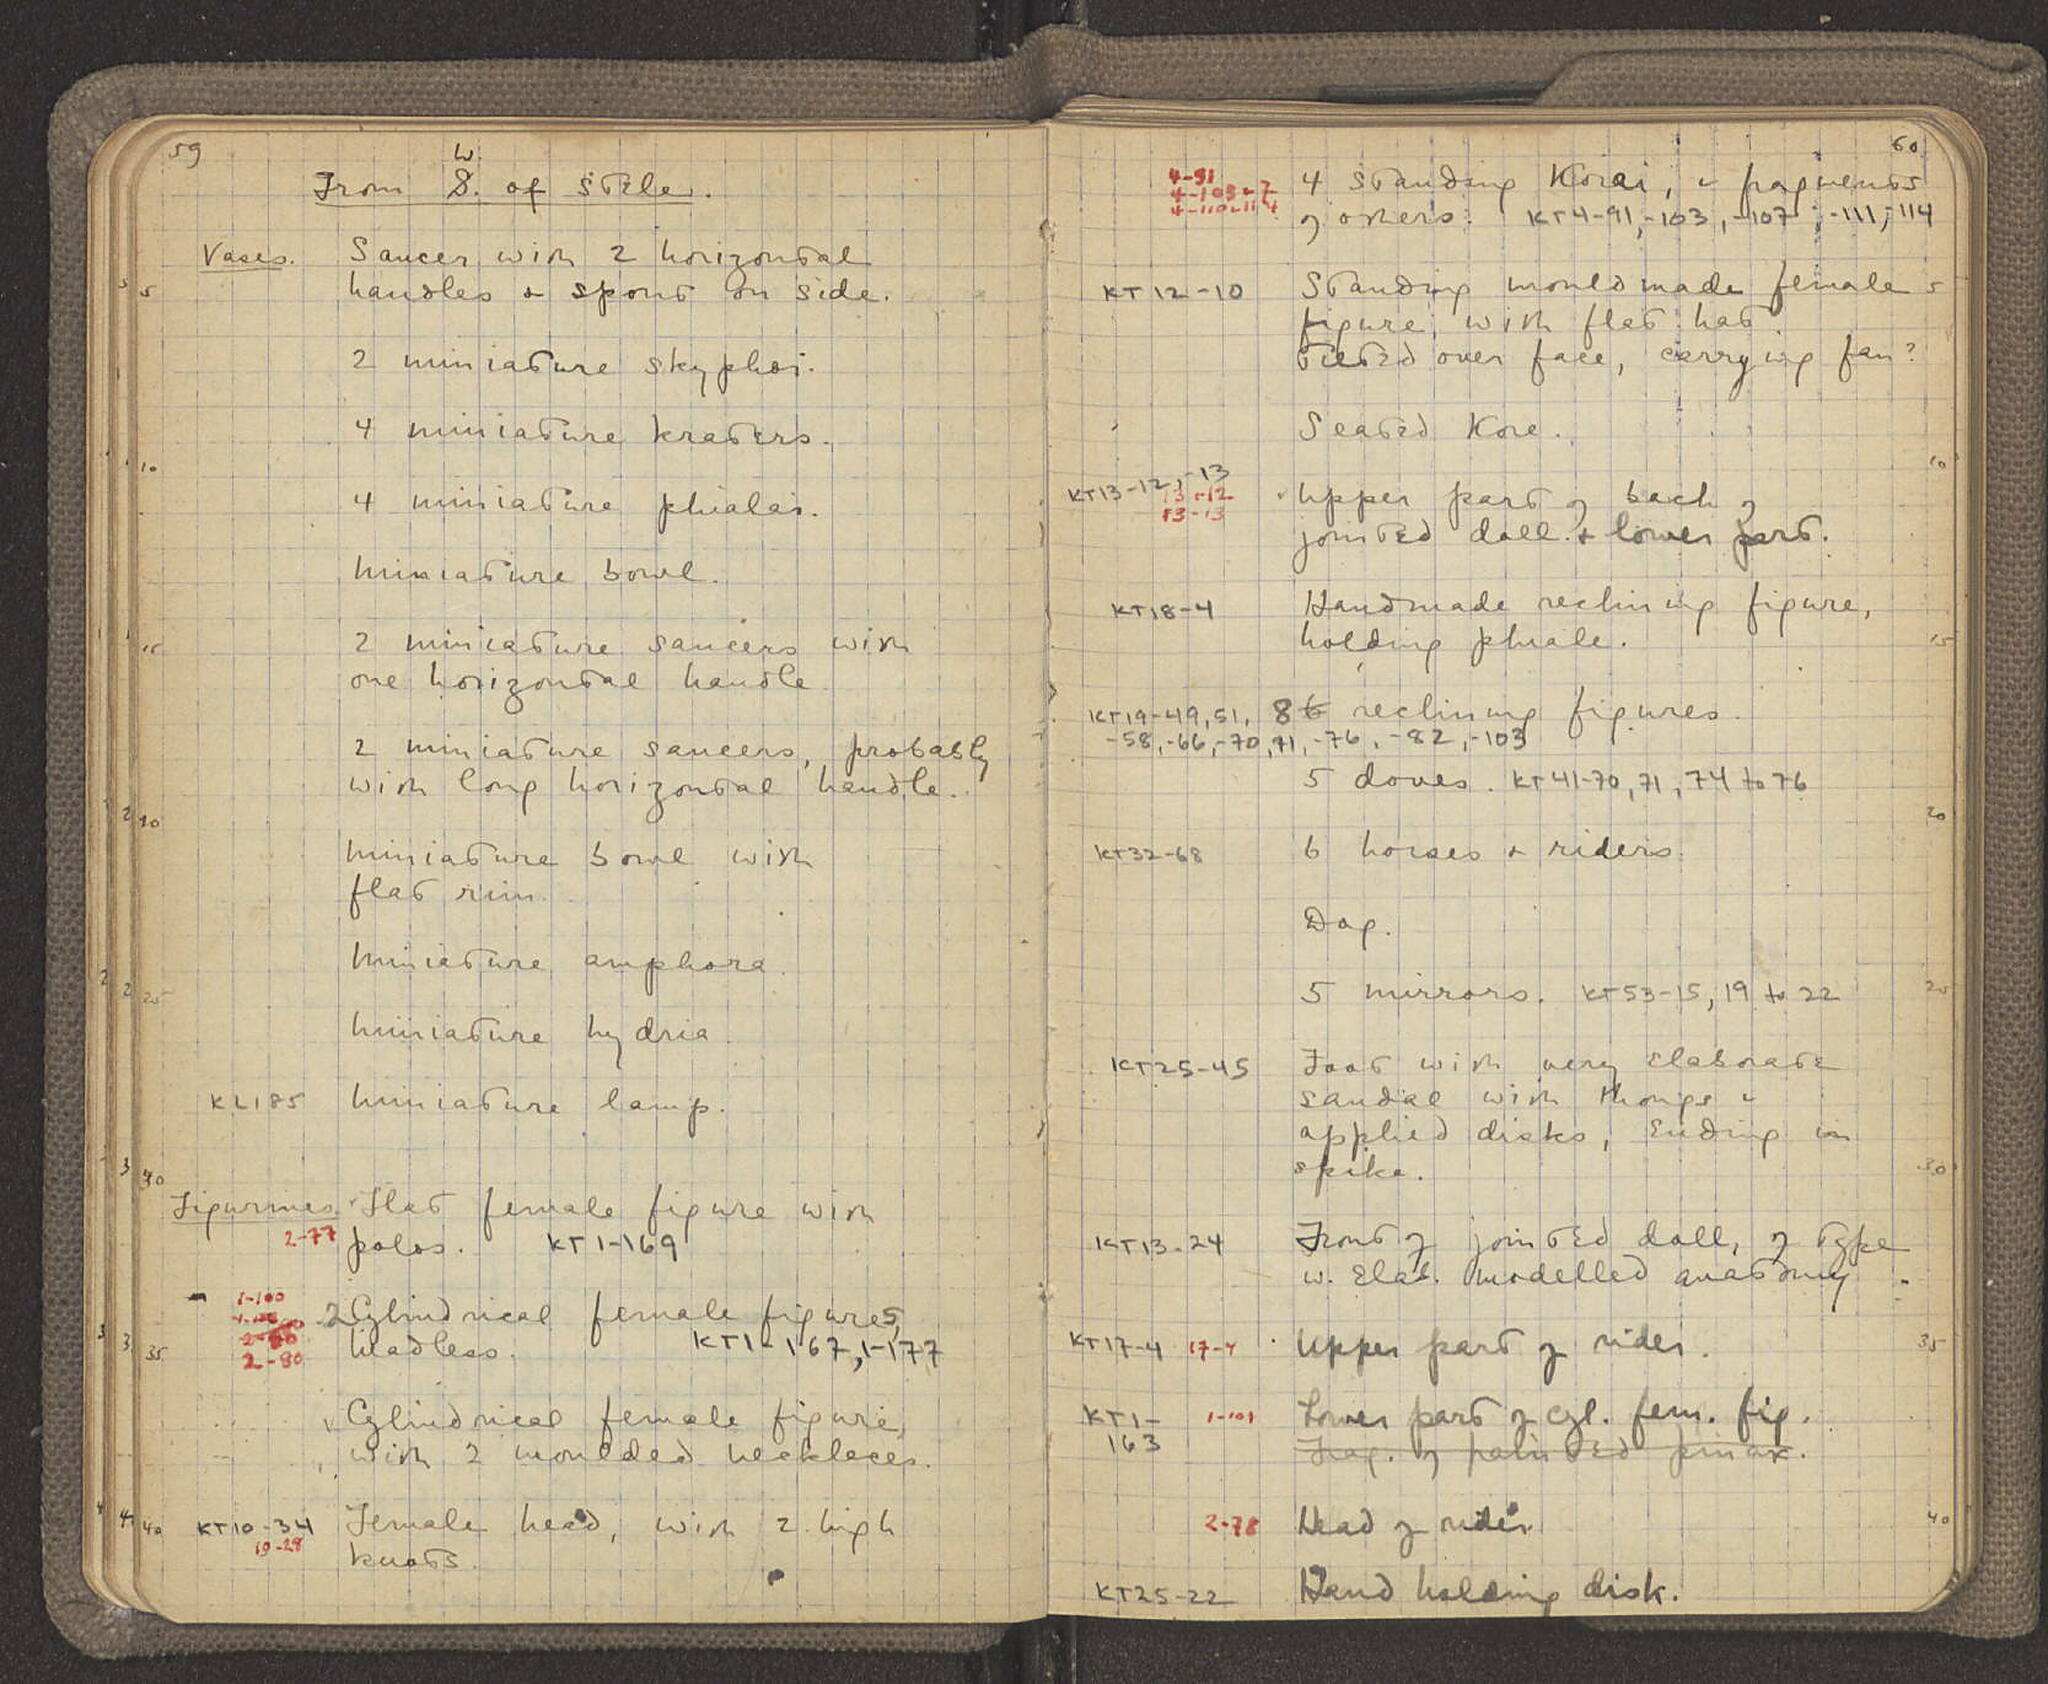 59
W.
From S. of stele.
Vases. Saucer with 2 horizontal
5 handles & spout on side.
2 miniature skyphoi.
4 miniature kraters.
10
4 miniature phialai.
Miniature bowl.
15 2 miniature saucers with
one horizontal handle
2 miniature saucers, probably
with long horizontal handle.
20
Miniature bowl with
flat rim.
Miniature amphora.
25
Miniature hydria
KL185 Miniature lamp.
30
Figurines. Flat female figure with
2-77 polos. KT1-169
1-100 2 Cylindrical female figures,
35 2-80 headless. KT1-167, 1-177
Cylindrical female figure,
with 2 moulded necklaces.
40 KT10-34 Female head, with 2 high
10-28 knots.
60
4-91 4 standing Korai, & fragments
4-103-7
4-110-114 of others. KT4-91, -103, -107, -111, -114
KT12-10 Standing mouldmade female 5
figure, with flat hat
tilted over face, carrying fan?
Seated Kore.
10
KT13-12, -13
13-12 Upper part of back of
13-13 jointed doll & lower part.
KT18-4 Handmade reclining figure,
holding phiale. 15
KT19-49, 51, 8 6 reclining figures.
-58, -66, -70, 71, -76, -82, -103
5 doves. KT41-70, 71, 74 to 76
20
KT32-68 6 horses & riders.
Dog.
5 mirrors. KT53-15, 19 to 22 25
KT25-45 Foot with very elaborate
sandal with thongs &
applied disks, ending in
spike. 30
KT13-24 Front of jointed doll, of type
w. elab. modelled anatomy.
KT17-4 17-4 Upper part of rider. 35
KT1- 1-101 Lower part of cyl. fem. fig.
163 Frag. of painted pinax.
2-78 Head of rider 40
KT25-22 Hand holding disk.